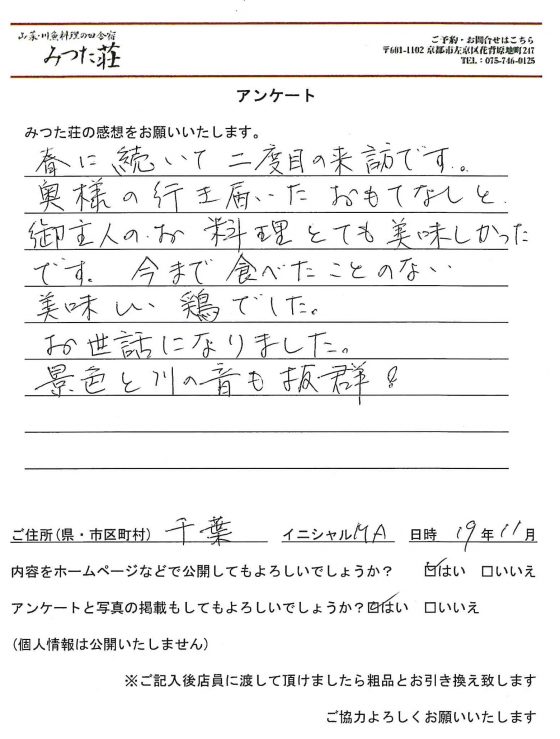 山菜・川魚料理の田舎宿
みつた荘
ご予約・お問合せはこちら
〒601-1102 京都市左京区花背原地町247
TEL:075-746-0125
アンケート
みつた荘の感想をお願いいたします。
春に続いて二度目の来訪です。
奥様の行き届いたおもてなしと
御主人のお料理とても美味しかった
です。今まで食べたことのない
美味しい鶏でした。
お世話になりました。
景色と川の音も抜群!
ご住所(県・市区町村) 千葉 イニシャル MA 日時 19年11月
内容をホームページなどで公開してもよろしいでしょうか? ☑はい □いいえ
アンケートと写真の掲載もしてもよろしいでしょうか? ☑はい □いいえ
(個人情報は公開いたしません)
※ご記入後店員に渡して頂けましたら粗品とお引き換え致します
ご協力よろしくお願いいたします